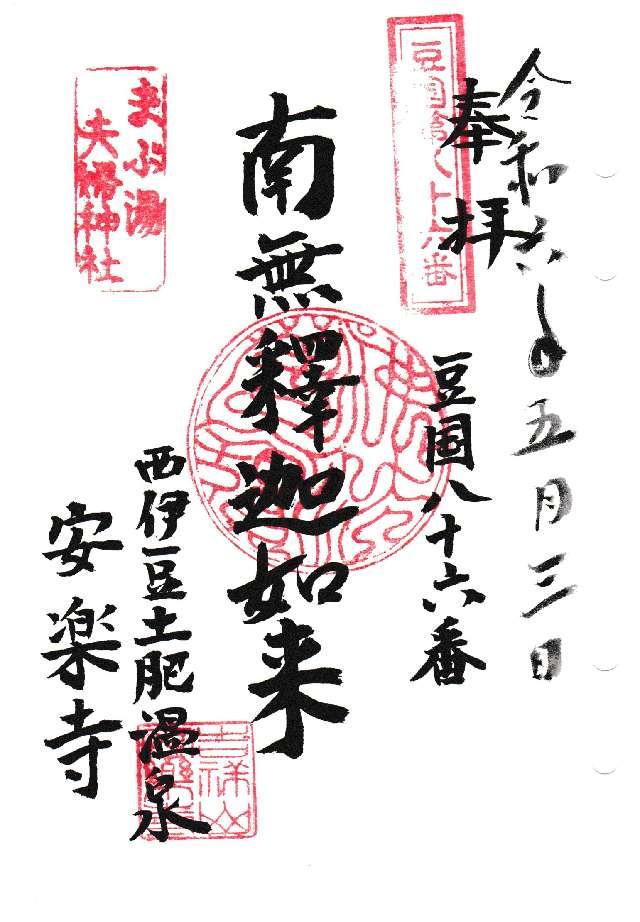 令和六年五月三日
奉拝
豆国第八十六番
豆国八十六番
南無釋迦如来
西伊豆土肥温泉
安楽寺
まぶ湯
夫婦神社
吉祥山